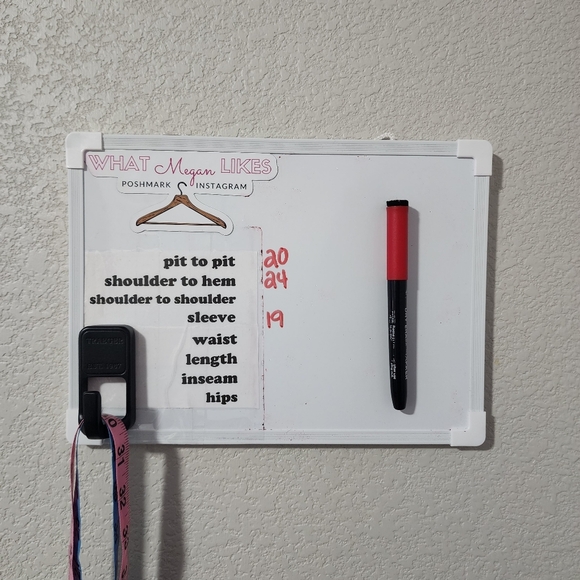 WHAT Megan LIKES
POSHMARK INSTAGRAM
pit to pit 20
shoulder to hem 24
shoulder to shoulder
sleeve 19
waist
length
inseam
hips
31
32